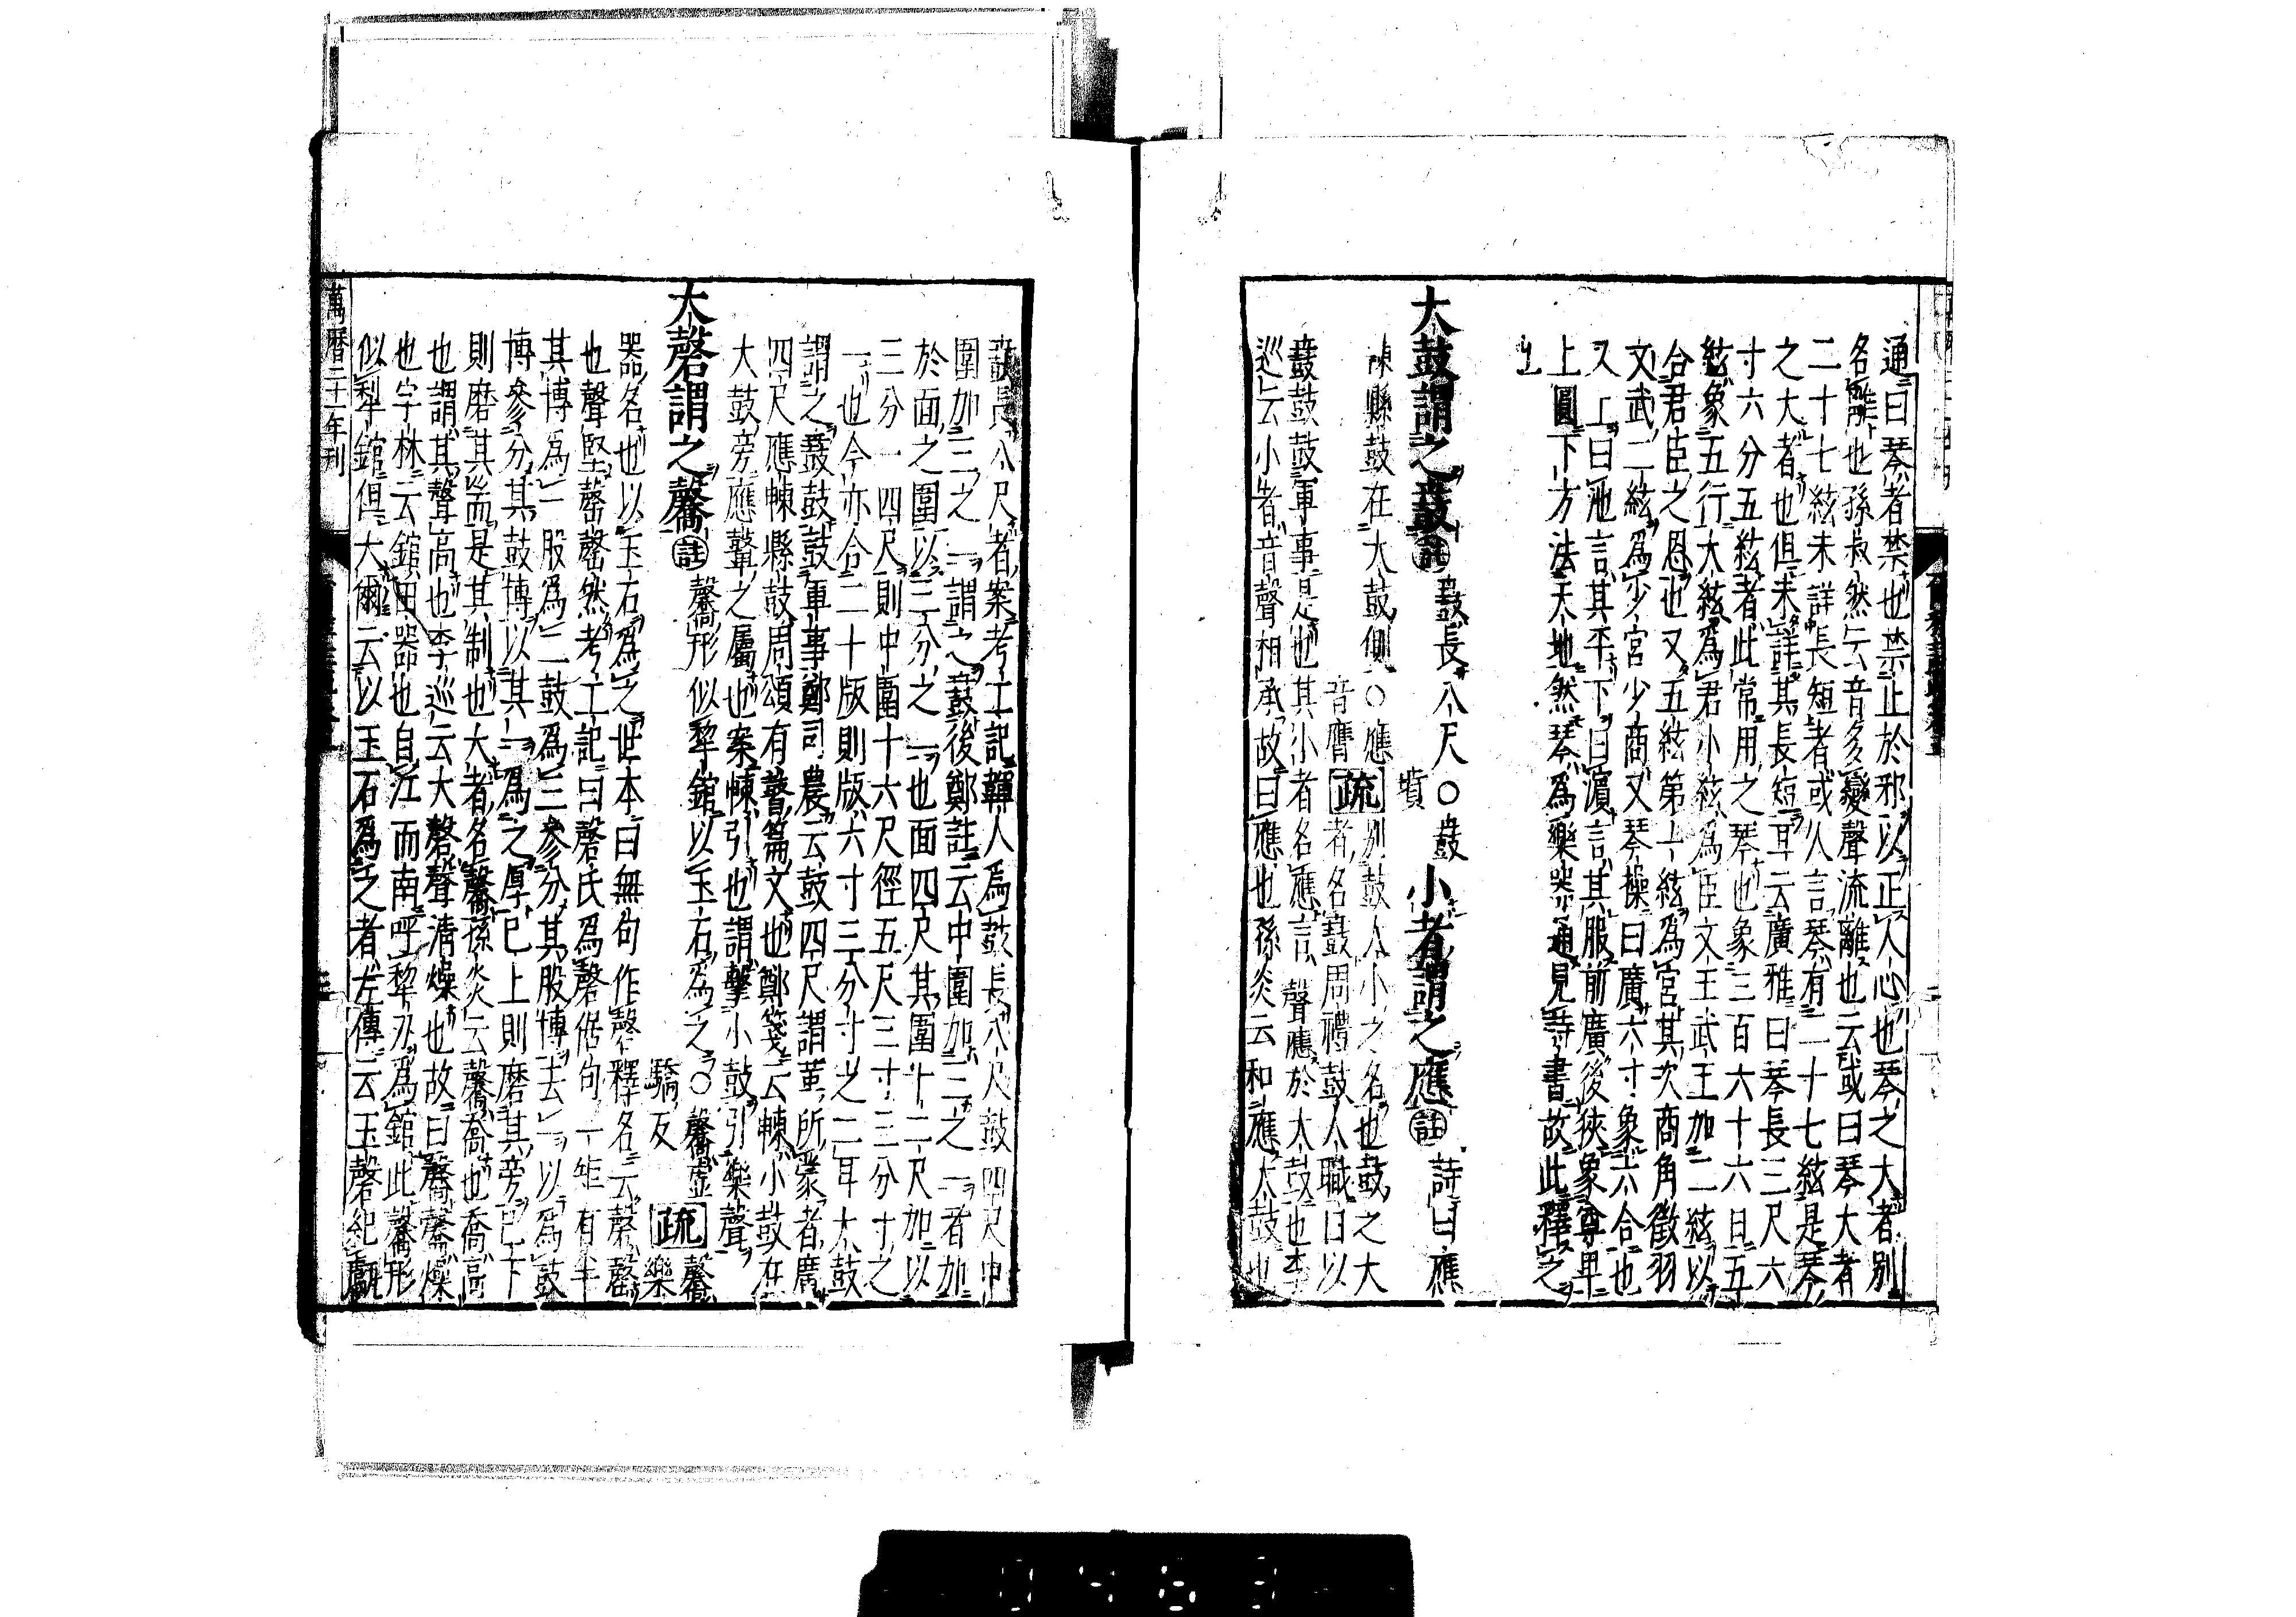 通曰琴者禁也禁止於邪以正人心也琴之大者別
名離也孫叔然云音多變聲流離也云或曰琴大者
二十七絃未詳長短者或人言琴有二十七絃是琴
之大者也但未詳其長短耳云廣雅曰琴長三尺六
寸六分五絃者此常用之琴也象三百六十六日五
絃象五行大絃爲君小絃爲臣文王武王加二絃以
合君臣之恩也又五絃第一絃爲宮其次商角徵羽
文武二絃爲少宮少商又琴操曰廣六寸象六合也
又上曰池言其平下曰濵言其服前廣後狹象尊卑
上圓下方法天地然琴爲樂器通見詩書故此釋之
也
大鼓謂之鼖註鼖長八尺○鼖墳小者謂之應註詩曰應
朄縣鼓在大鼓側○應音膺疏別鼓大小之名也鼓之大
者名鼖周禮鼓人職曰以
鼖鼓鼓軍事是也其小者名應言聲應於大鼓也李
巡云小者音聲相承故曰應也孫炎云和應大鼓也
鼖長八尺者案考工記韗人爲鼓長八尺鼓四尺中
圍加三之一謂之鼖後鄭註云中圍加三之一者加
於面之圍以三分之一也面四尺其圍十二尺加以
三分一四尺則中圍十六尺徑五尺三寸三分寸之
一也今亦合二十版則版六寸三分寸之二耳大鼓
謂之鼖鼖鼓軍事鄭司農云鼓四尺謂革所蒙者廣
四尺應朄縣鼓周頌有瞽篇文也鄭箋云朄小鼓在
大鼓旁應鼙之屬也案朄引也謂擊小鼓引樂聲
大磬謂之毊註毊形似犂錧以玉石爲之○毊虛驕反疏毊樂
器名也以玉石爲之世本曰無句作磬釋名云磬罄
也聲堅罄罄然考工記曰磬氏爲磬倨句一矩有半
其博爲一股爲二鼓爲三參分其股博去一以爲鼓
博參分其鼓博以其一爲之厚已上則磨其旁已下
則磨其耑是其制也大者名毊孫炎云毊喬也喬高
也謂其聲高也李巡云大磬聲清燥也故曰毊毊燥
也字林云錧田器也自江而南呼犂刃爲錧此毊形
似犂錧但大爾云以玉石爲之者左傳云玉磬紀甗
萬曆二十一年刊